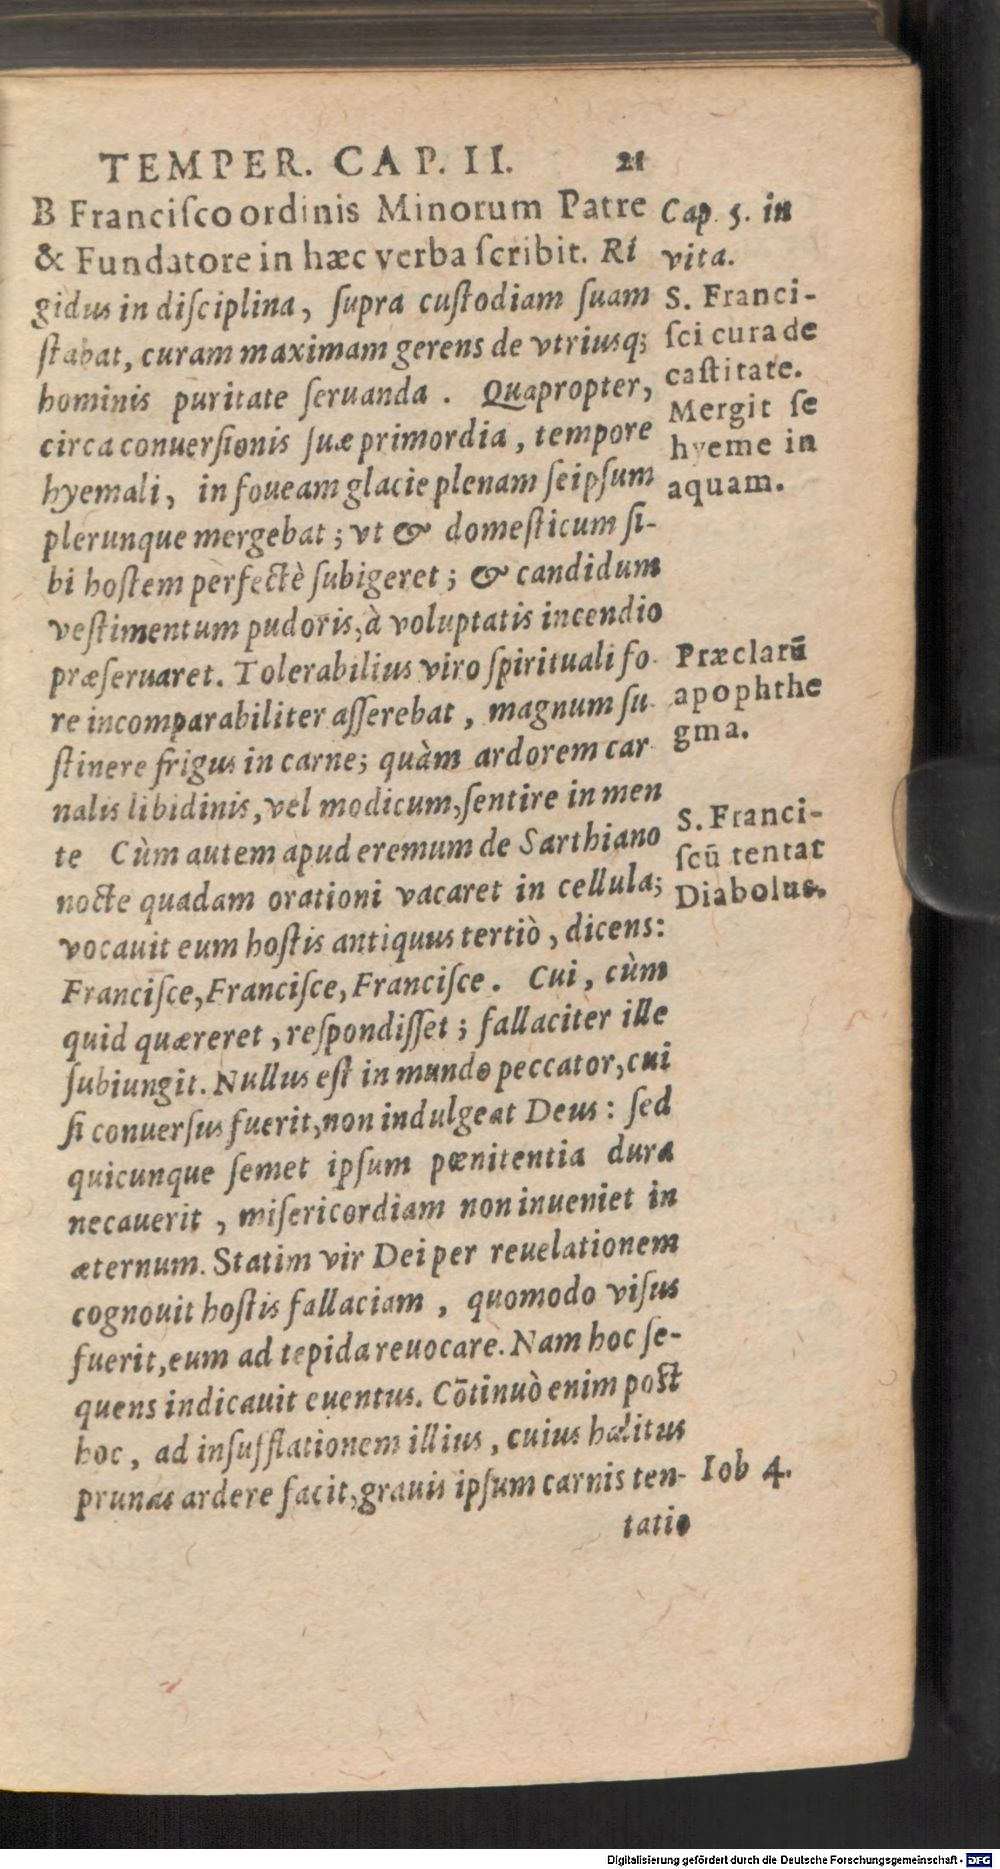 TEMPER. CAP. II. 21
B Franciſco ordinis Minorum Patre
& Fundatore in hæc verba ſcribit. Ri
gidus in diſciplina, ſupra cuſtodiam ſuam
ſtabat, curam maximam gerens de vtriusq;
hominis puritate ſeruanda. Quapropter,
circa conuerſionis ſuæ primordia, tempore
hyemali, in foueam glacie plenam ſeipſum
plerunque mergebat; vt & domeſticum ſi-
bi hoſtem perfectè ſubigeret; & candidum
veſtimentum pudoris, à voluptatis incendio
præſeruaret. Tolerabilius viro ſpirituali fo-
re incomparabiliter aſſerebat, magnum ſu-
ſtinere frigus in carne; quàm ardorem car
nalis libidinis, vel modicum, ſentire in men
te Cùm autem apud eremum de Sarthiano
nocte quadam orationi vacaret in cellula;
vocauit eum hoſtis antiquus tertiò, dicens:
Franciſce, Franciſce, Franciſce. Cui, cùm
quid quæreret, reſpondiſſet; fallaciter ille
ſubiungit. Nullus eſt in mundo peccator, cui
ſi conuerſus fuerit, non indulgeat Deus: ſed
quicunque ſemet ipſum pœnitentia dura
necauerit, miſericordiam non inueniet in
æternum. Statim vir Dei per reuelationem
cognouit hoſtis fallaciam, quomodo viſus
fuerit, eum ad tepida reuocare. Nam hoc ſe-
quens indicauit euentus. Cōtinuò enim poſt
hoc, ad inſufflationem illius, cuius halitus
prunas ardere facit, grauis ipſum carnis ten-
tatio
Cap. 5. in
vita.
S. Franci-
ſci cura de
caſtitate.
Mergit ſe
hyeme in
aquam.
Præclarū
apophthe
gma.
S. Franci-
ſcū tentat
Diabolus.
Iob 4.
Digitalisierung gefördert durch die Deutsche Forschungsgemeinschaft - DFG